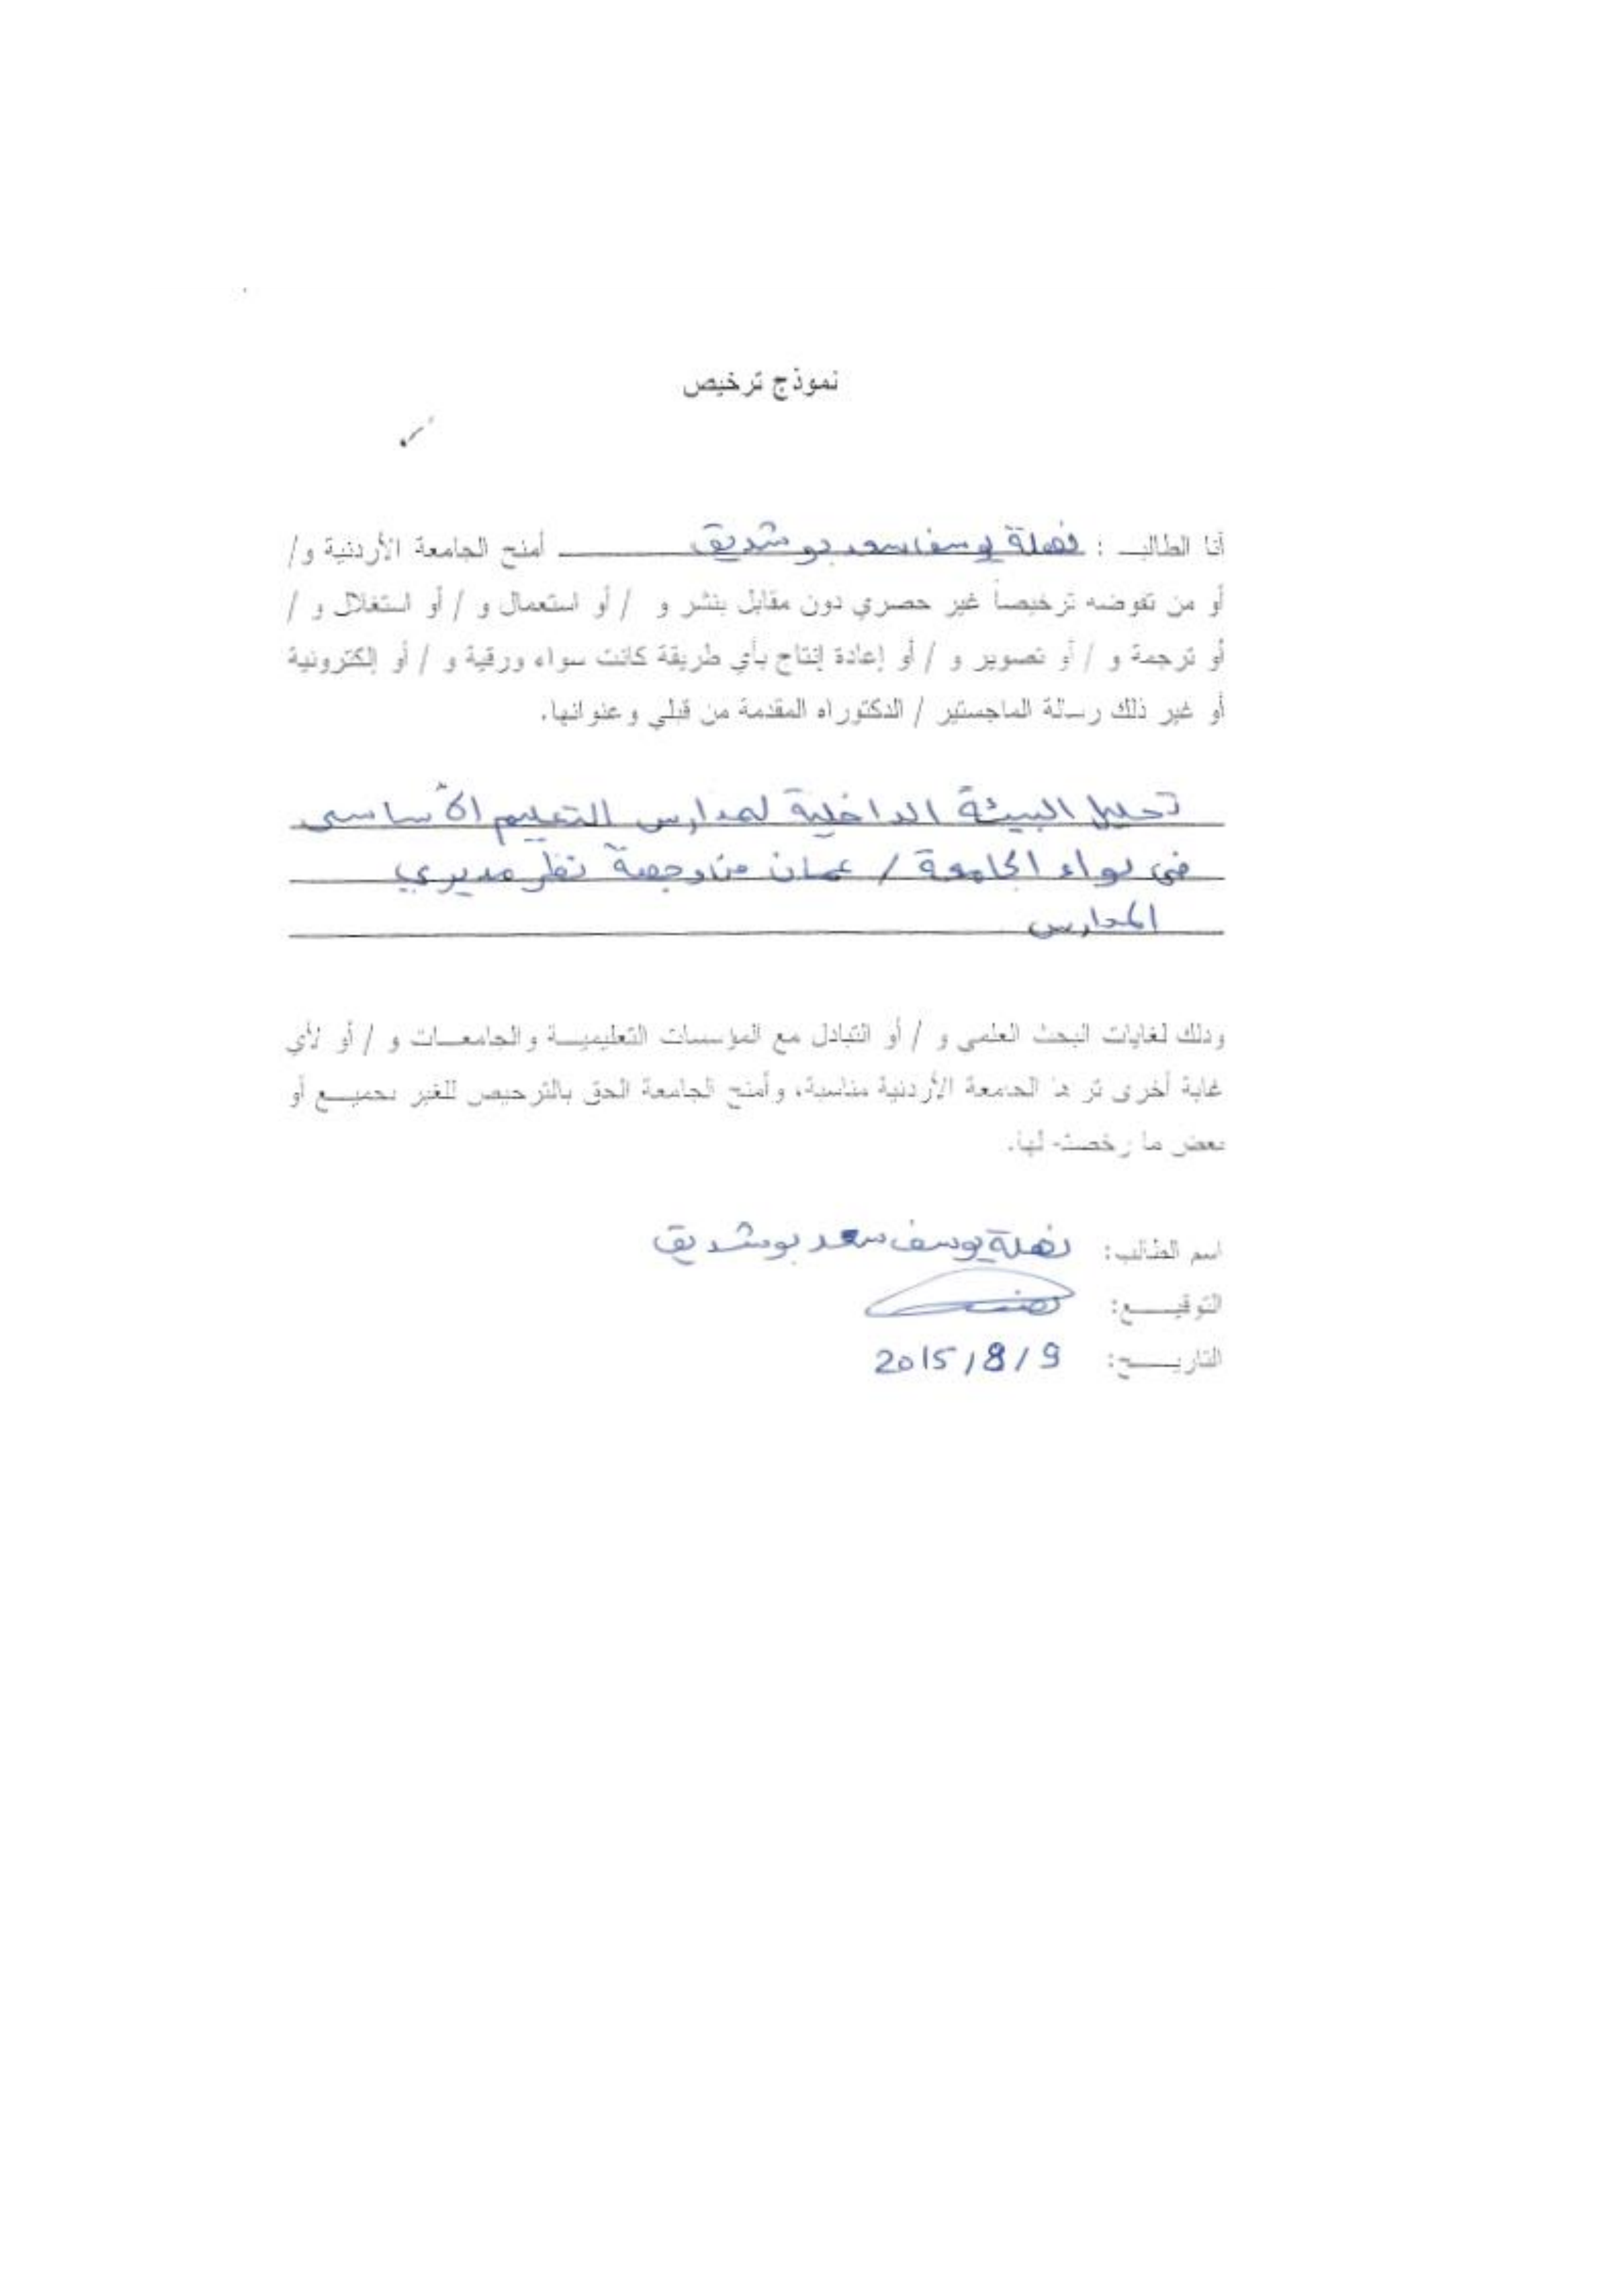 نموذج ترخيص
أنا الطالب : نهلة يوسف سعد بوشديق أمنح الجامعة الأردنية و/
أو من تفوضه ترخيصاً غير حصري دون مقابل بنشر و / أو استعمال و / أو استغلال و /
أو ترجمة و / أو تصوير و / أو إعادة إنتاج بأي طريقة كانت سواء ورقية و / أو إلكترونية
أو غير ذلك رسالة الماجستير / الدكتوراه المقدمة من قبلي وعنوانها.
تحليل البيئة الداخلية لمدارس التعليم الأساسي
في لواء الجامعة / عمان من وجهة نظر مديري
المدارس
وذلك لغايات البحث العلمي و / أو التبادل مع المؤسسات التعليمية والجامعات و / أو لأي
غاية أخرى تراها الجامعة الأردنية مناسبة، وأمنح الجامعة الحق بالترخيص للغير بجميع أو
بعض ما رخصته لها.
اسم الطالب: نهلة يوسف سعد بوشديق
التوقيع:
التاريخ: 2015/8/9